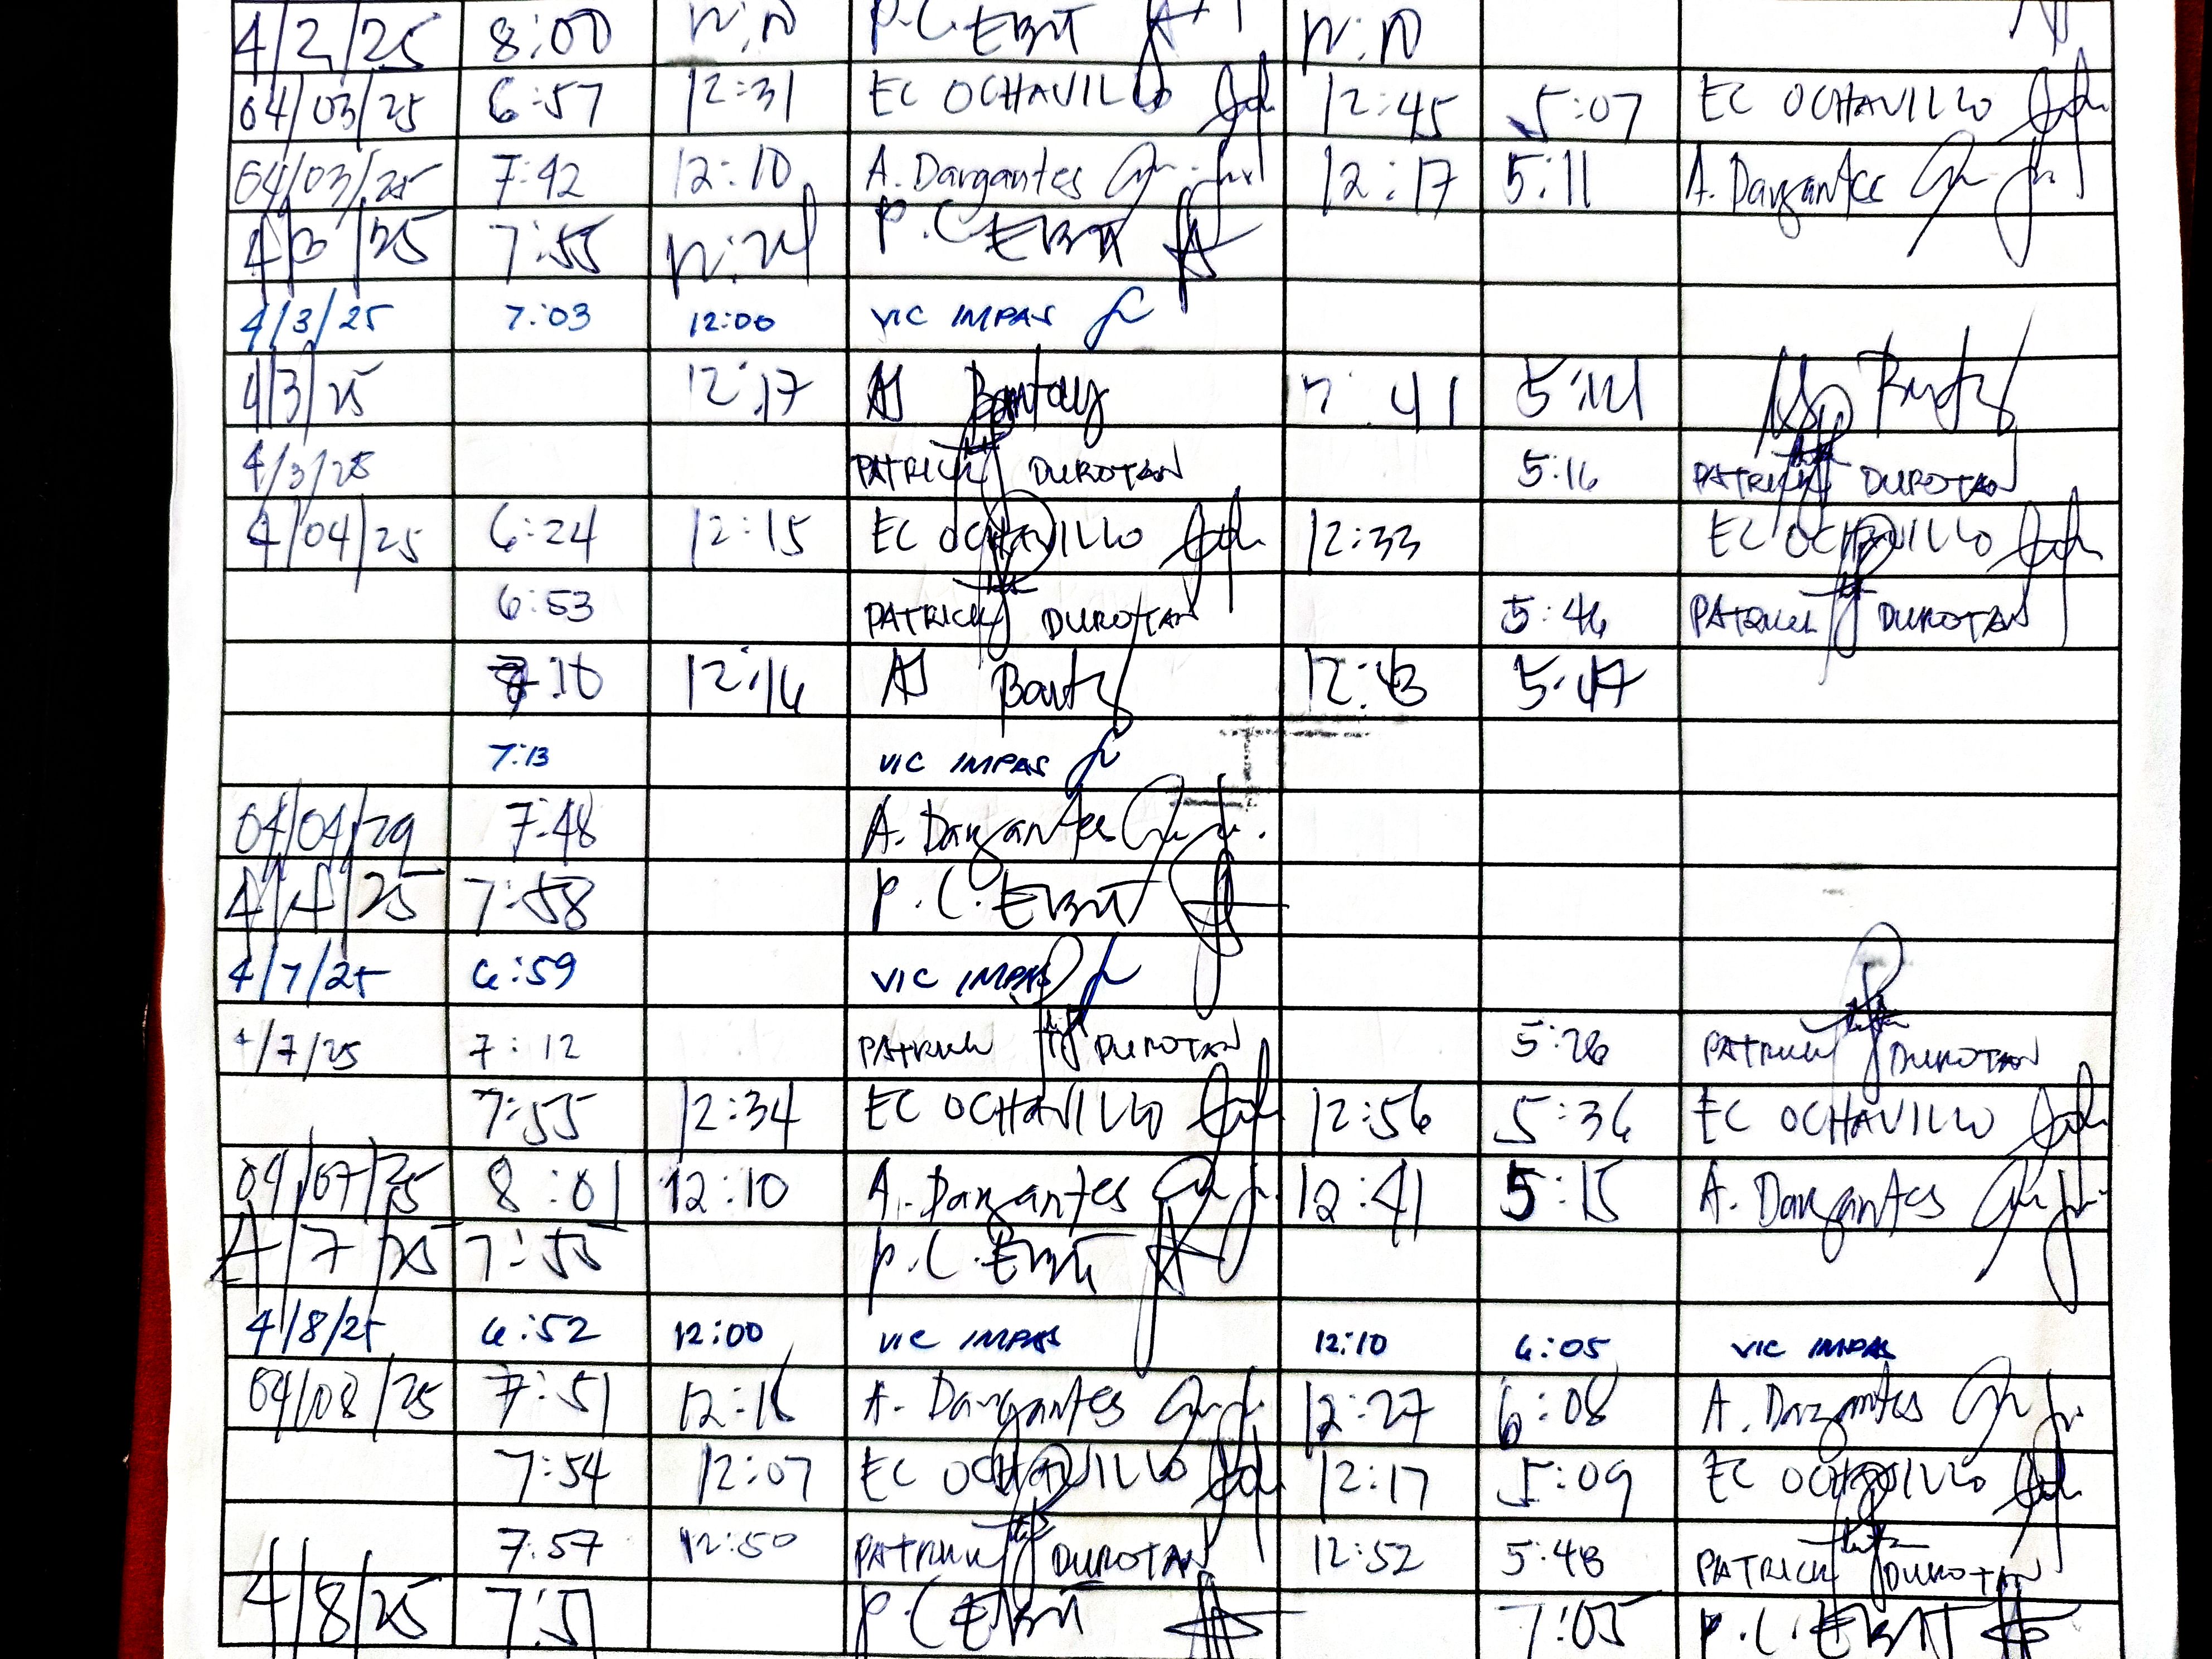 4/2/25 8:00 P.C. EBIT
04/03/25 6:57 12:31 EC OCHAVILLO 12:45 5:07 EC OCHAVILLO
04/03/25 7:42 12:10 A. Dargantes 12:17 5:11 A. Dargantes
4/3/25 7:55 P.C. EBIT
4/3/25 7:03 12:00 VIC IMPAS
4/3/25 12:17 5:21
4/3/25 PATRICK DUROTAN 5:16 PATRICK DUROTAN
4/04/25 6:24 12:15 EC OCHAVILLO 12:33 EC OCHAVILLO
6:53 PATRICK DUROTAN 5:46 PATRICK DUROTAN
12:16 12:43 5:47
7:13 VIC IMPAS
7:48 A. Dargantes
4/4/25 7:58 P.C. EBIT
4/7/25 6:59 VIC IMPAS
4/7/25 7:12 PATRICK DUROTAN 5:26 PATRICK DUROTAN
7:55 12:34 EC OCHAVILLO 12:56 5:36 EC OCHAVILLO
04/07/25 8:01 12:10 A. Dargantes 12:41 5:15 A. Dargantes
4/7/25 7:55 P.C. EBIT
4/8/25 6:52 12:00 VIC IMPAS 12:10 6:05 VIC IMPAS
04/08/25 7:51 12:16 A. Dargantes 12:27 6:08 A. Dargantes
7:54 12:07 EC OCHAVILLO 12:17 5:09 EC OCHAVILLO
7:57 12:50 PATRICK DUROTAN 12:52 5:48 PATRICK DUROTAN
4/8/25 7:51 P.C. EBIT 7:05 P.C. EBIT